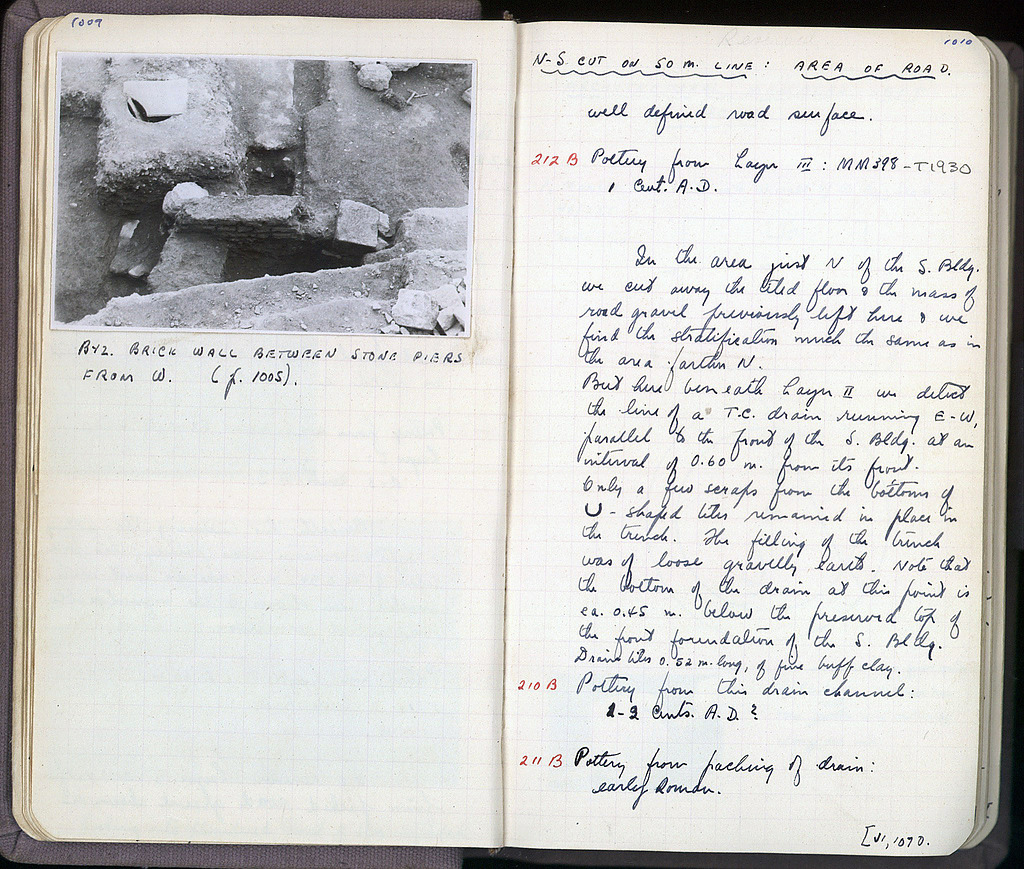 1009
B42. BRICK WALL BETWEEN STONE PIERS
FROM W. (p. 1005).
1010
N-S. CUT ON 50 M. LINE: AREA OF ROAD.
well defined road surface.
212 B Pottery from Layer III : MM398 - T1930
1 Cent. A.D.
In the area just N of the S. Bldg.
we cut away the tiled floor & the mass of
road gravel previously left here & we
find the stratification much the same as in
the area farther N.
But here beneath Layer II we detect
the line of a T.C. drain running E-W,
parallel to the front of the S. Bldg. at an
interval of 0.60 m. from its front.
Only a few scraps from the bottoms of
U-shaped tiles remained in place in
the trench. The filling of the trench
was of loose gravelly earth. Note that
the bottom of the drain at this point is
ca. 0.45 m. below the preserved top of
the front foundation of the S. Bldg.
Drain tiles 0.62 m. long, of fine buff clay.
210 B Pottery from this drain channel:
1-2 Cents. A.D.?
211 B Pottery from packing of drain:
early Roman.
1090.